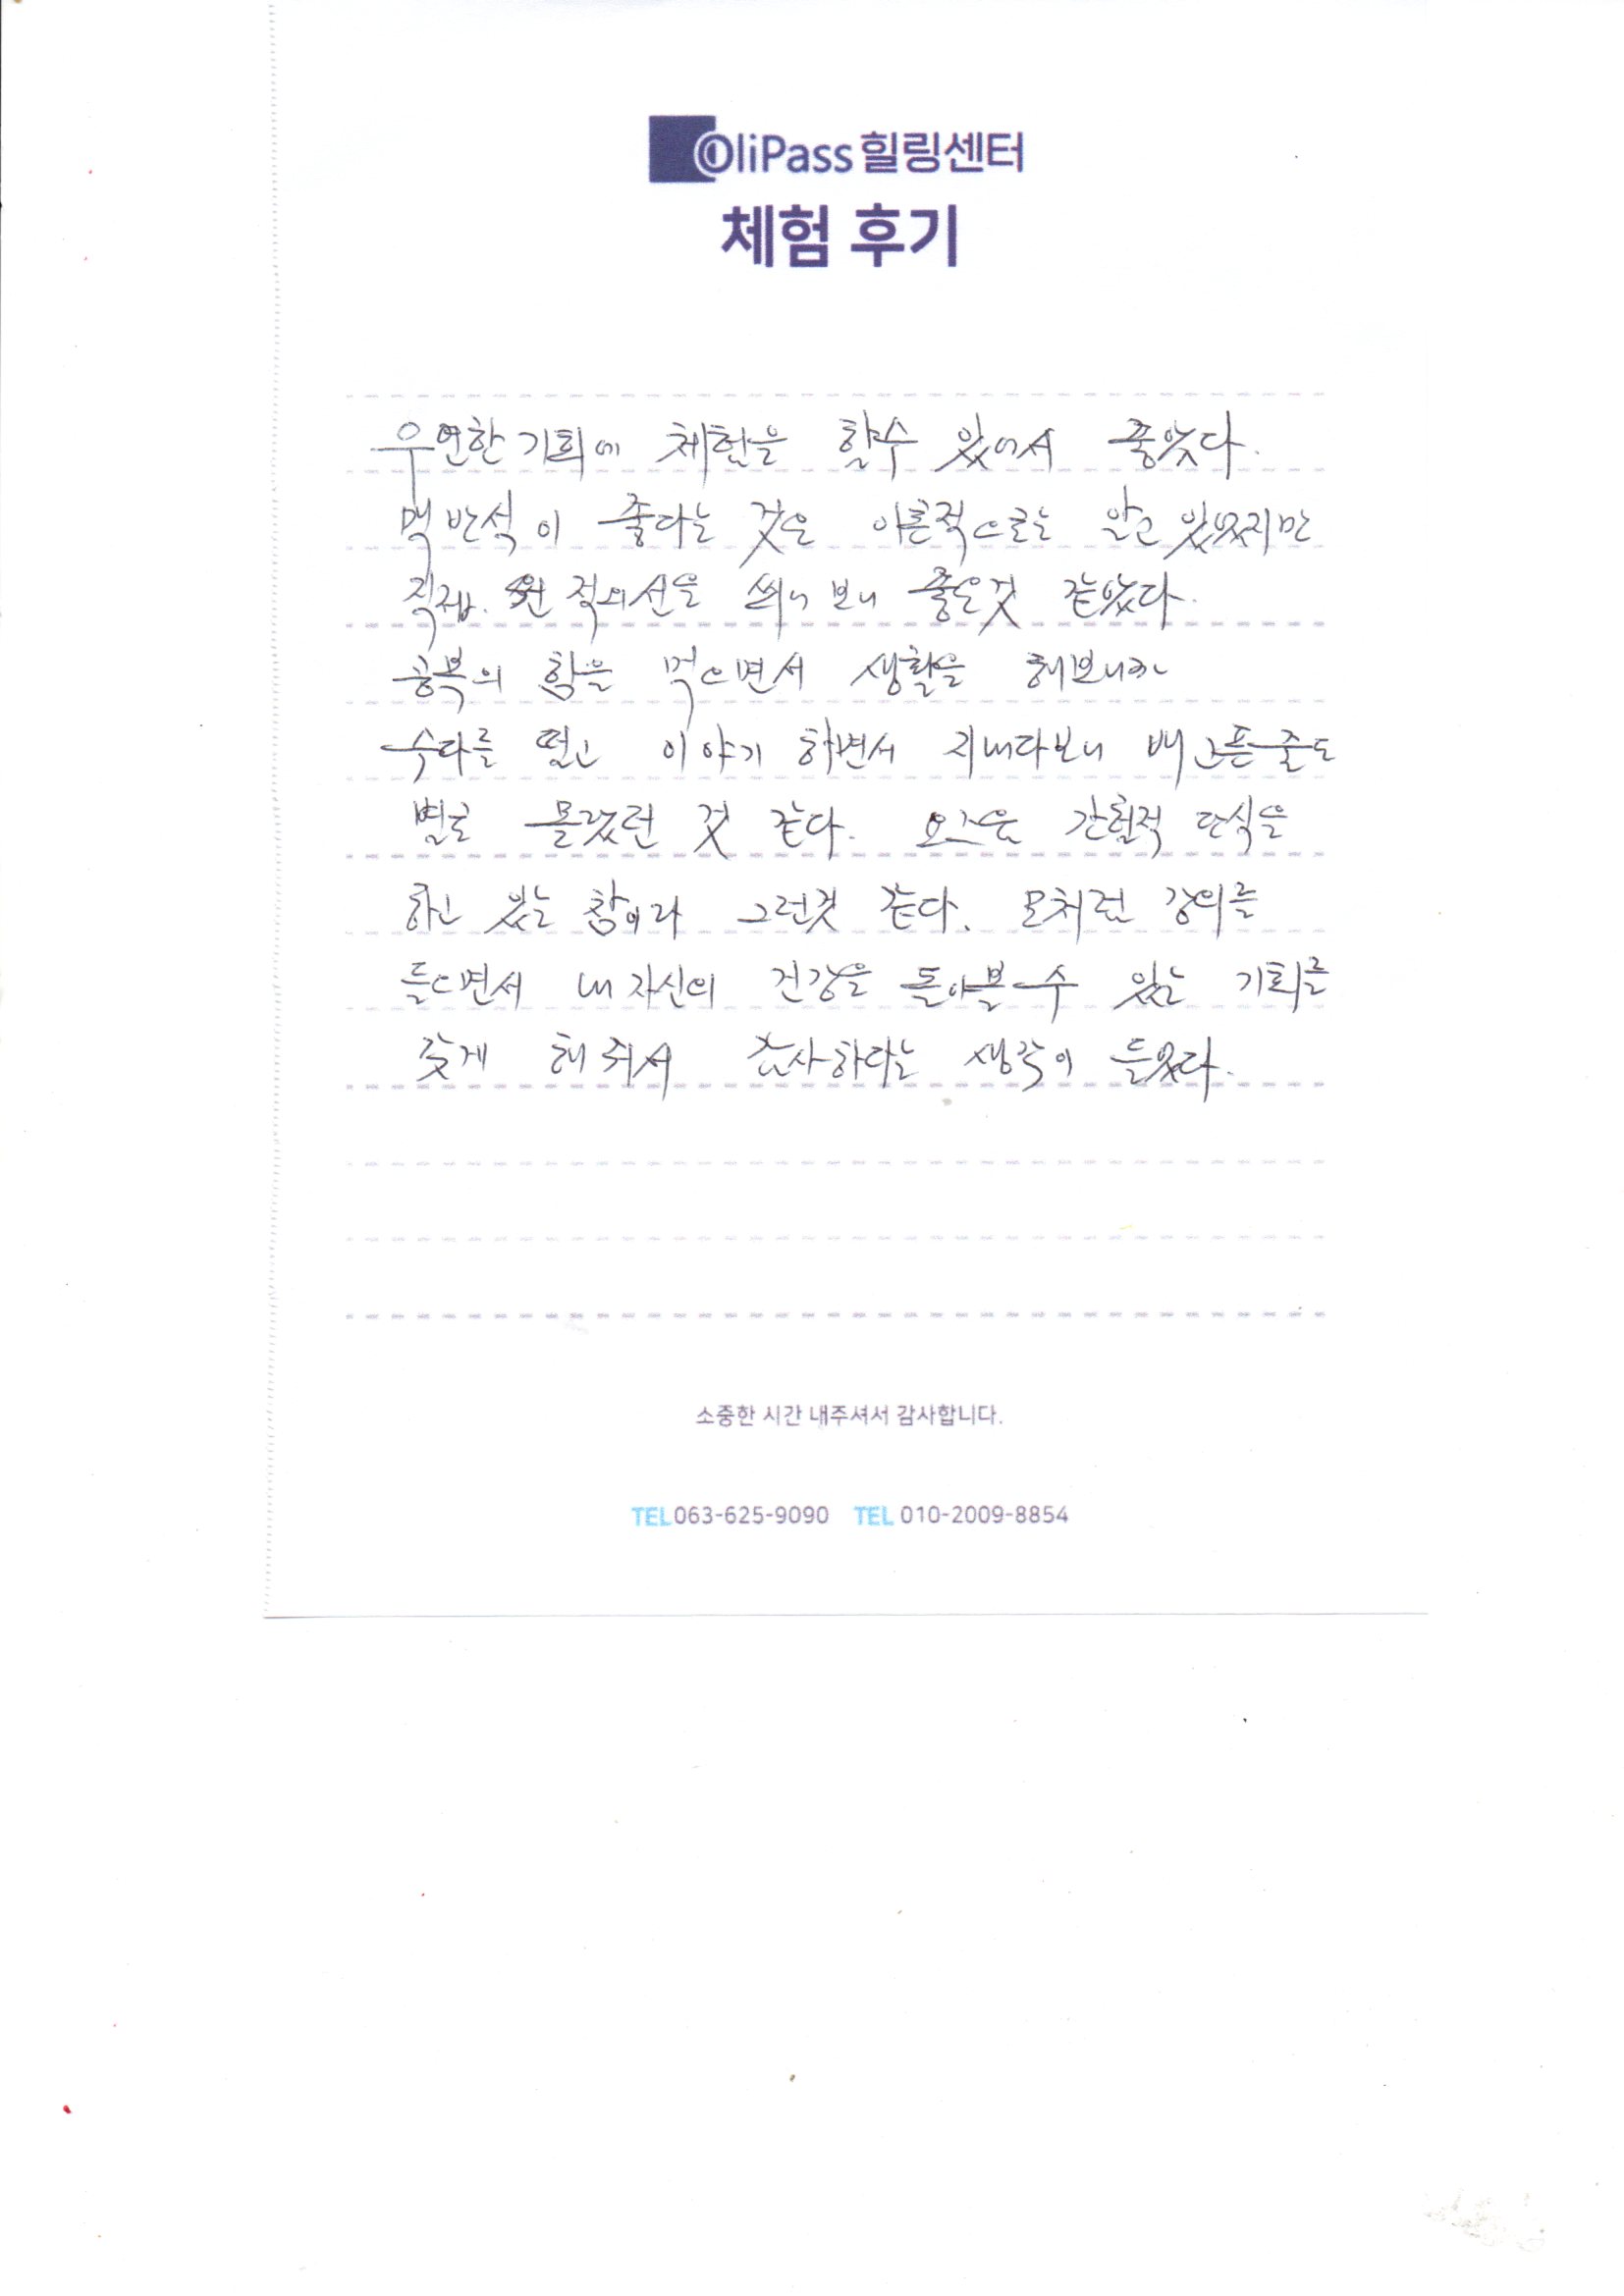 OliPass 힐링센터
체험 후기
우연한 기회에 체험을 할수 있어서 좋았다.
맥반석이 좋다는 것은 이론적으로는 알고 있었지만
직접. 원적외선을 쐬니 보니 좋은것 같았다.
공복의 힘을 먹으면서 생활을 해보니까
수다를 떨고 이야기 하면서 지내다보니 배고픈줄도
별로 몰랐던 것 같다. 요즈음 간헐적 단식을
하고 있는 참이라 그런것 같다. 모처럼 강의를
들으면서 내 자신의 건강을 돌아볼 수 있는 기회를
갖게 해 줘서 감사하다는 생각이 들었다.
소중한 시간 내주셔서 감사합니다.
TEL 063-625-9090 TEL 010-2009-8854